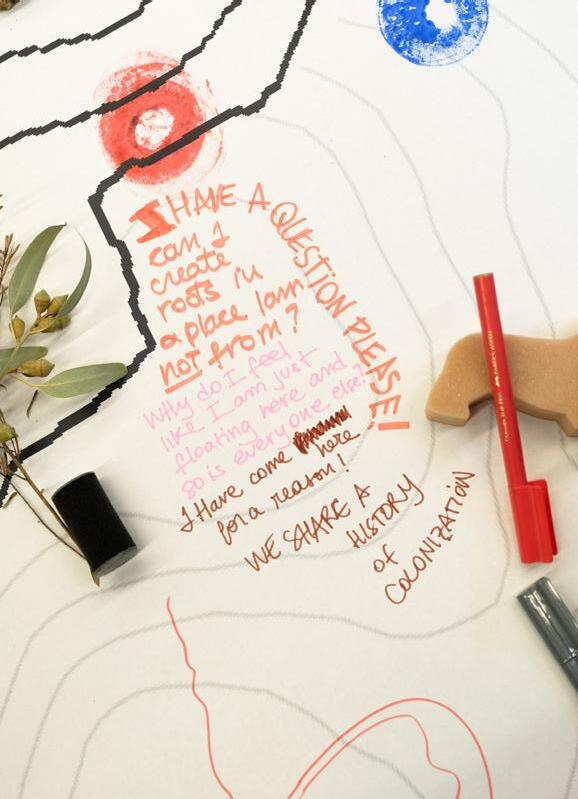 I HAVE A QUESTION PLEASE!
can I
create
roots in
a place I am
not from?
Why do I feel
like I am just
floating here and
so is everyone else?
I Have come here
for a reason!
WE SHARE A
HISTORY
of
COLONIZATION